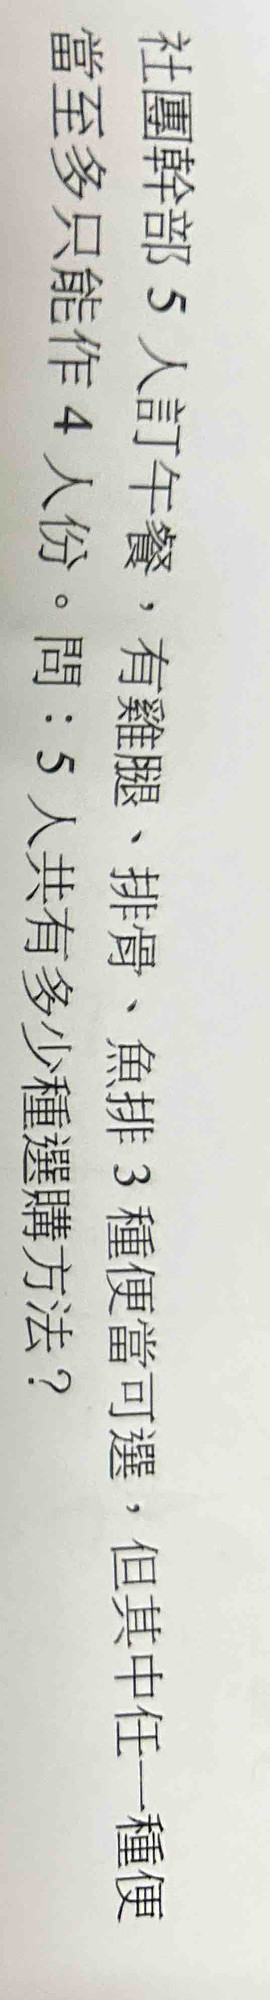 社團幹部 5 人訂午餐，有雞腿、排骨、魚排 3 種便當可選，但其中任一種便
當至多只能作 4 人份。問：5 人共有多少種選購方法？